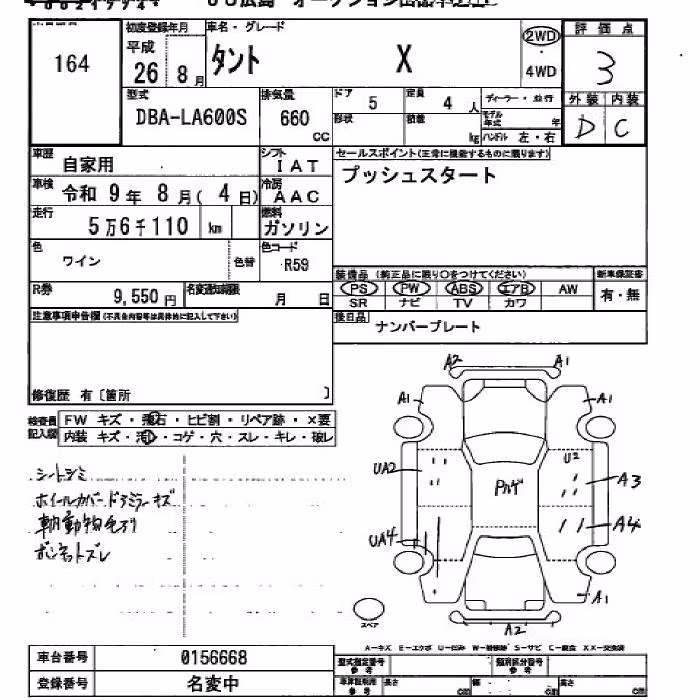 164
初度登録年月
平成
26 8月
車名・グレード
タント X
2WD
4WD
評価点
3
外装 内装
D C
型式
DBA-LA600S
排気量
660
cc
ドア 5
定員 4 人
形状
積載 kg
ディーラー・並行
モデル年式 年
ハンドル 左・右
車歴
自家用
シフト
IAT
車検
令和 9年 8月( 4日)
冷房
AAC
走行
5万6千110 km
燃料
ガソリン
色
ワイン
色替
色コード
R59
R券
9,550円
名変通知期限
月 日
セールスポイント(正常に機能するものに限ります)
プッシュスタート
装備品 (純正品に限り○をつけてください)
新車保証書
PS PW ABS エアB AW
SR ナビ TV カワ
有・無
後日品
ナンバープレート
注意事項申告欄(不具合内容等は具体的に記入して下さい)
修復歴 有〔箇所 〕
検査員
記入欄
FW キズ・飛石・ヒビ割・リペア跡・X要
内装 キズ・汚れ・コゲ・穴・スレ・キレ・破レ
シートシミ
ホイールカバードアミラーキズ
ボンネットズレ
A2
A1
A1
A1
UA2
U2
A3
UA4
A4
A1
A2
スペア
A-キズ E-エクボ U-凹み W-補修跡 S-サビ C-腐食 XX-交換済
車台番号
0156668
登録番号
名変中
型式指定番号
参考
類別区分番号
参考
車庫証明用
参考
長さ cm
幅 cm
高さ cm